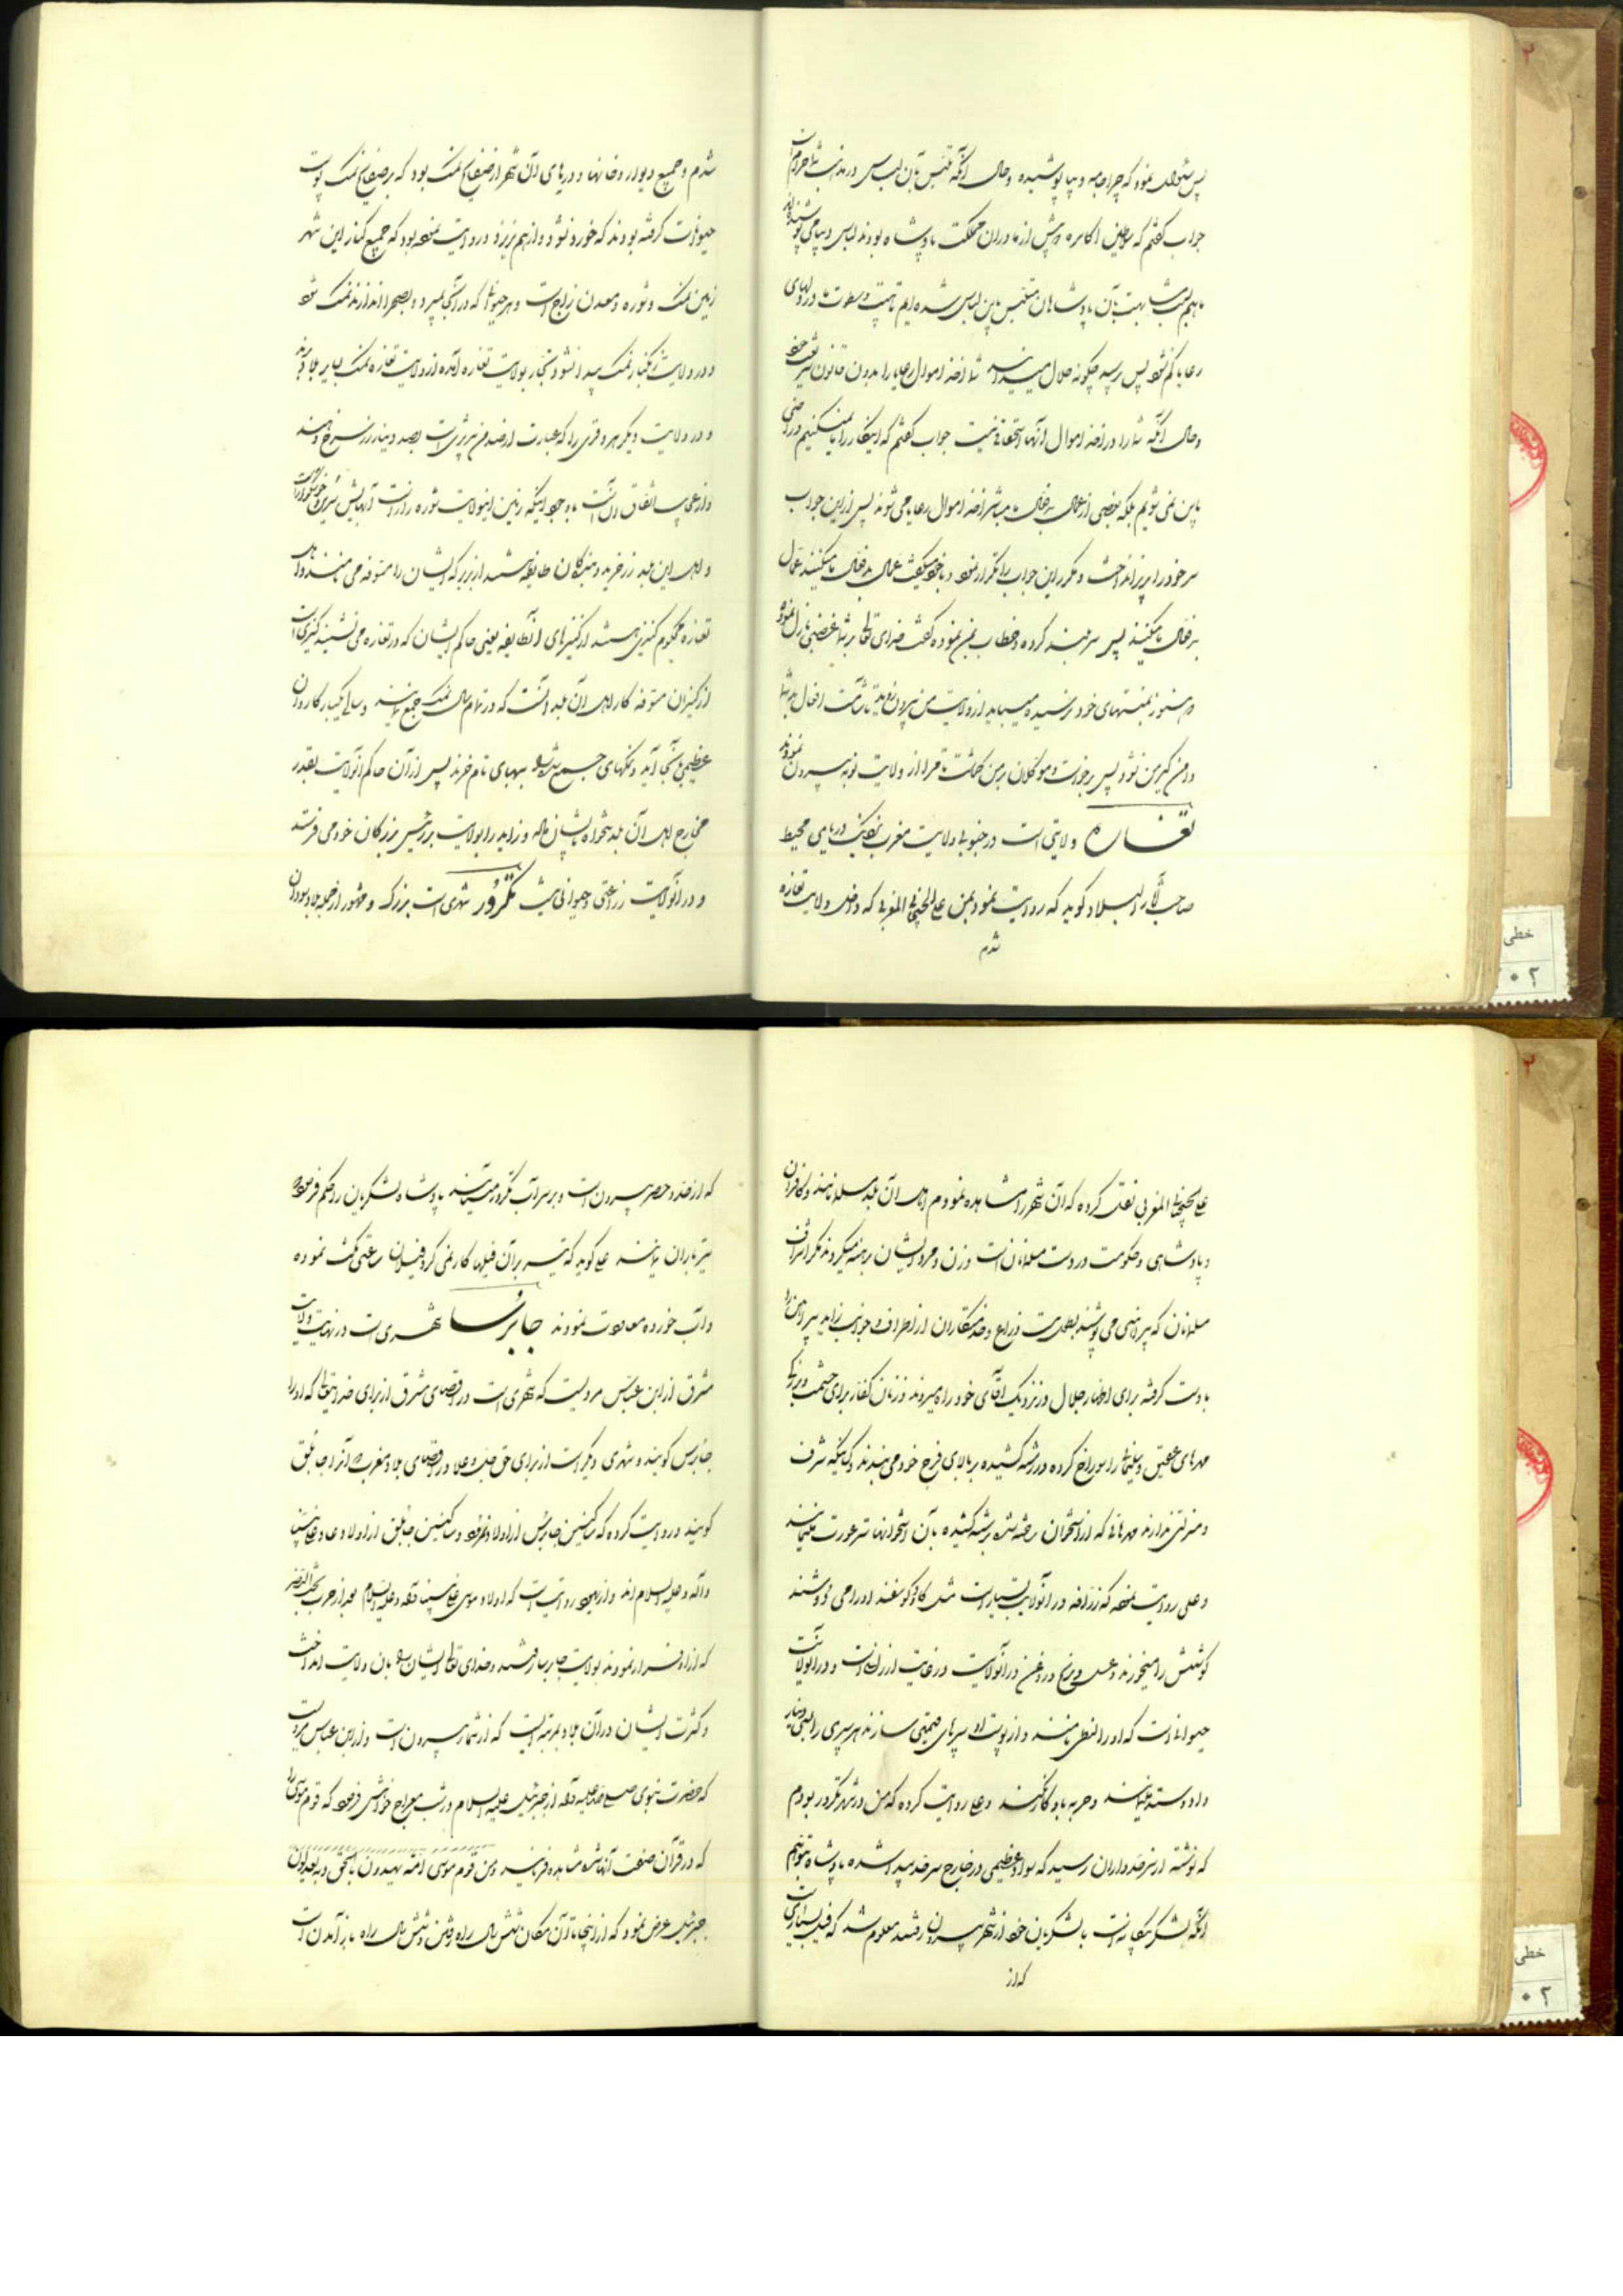 پس سئوال نمود که چرا جامه دیبا پوشیده و حال آنکه تلبس بآن لباس در مذهب شما حرام است
جواب گفتم که سلاطین اکاسره پیش از ما در آن مملکت پادشاه بودند لباس دیبا می پوشیدند
ما بهم بسبب مشابهت بآن پادشاهان متلبس باین لباس شده ایم تا هیبت و سطوت ما در دلهای
رعایا کم نشود پس پرسید چگونه حلال میدانید شما اخذ اموال رعایا را بدون قانون شریعت خود
و حال آنکه شما را در اخذ اموال آنها استحقاق نیست جواب گفتم که اینکار را ما نمیکنیم و راضی
باین نمی شویم بلکه بعضی از عمال بدفعال ما مباشر اخذ اموال رعایا می شوند پس از این جواب
سر خود را بزیر انداخت و مکرر این جواب را تکرار نمود و با خود میگفت عمال بدفعال ما میکنند عمال
بدفعال ما میکنند پس سر بلند کرده و خطاب بمن نموده گفت خدای تعالی بر شما غضبی نازل نموده
و هنوز بمنتهای خود نرسیده میباید از ولایت من بیرون روید تا شآمت افعال بد شما
دامن گیر من نشود پس برخواست و موکلان بر من گماشت تا مرا از ولایت نوبه بیرون نمودند
تغاره ولایتی است در جنوبی ولایت مغرب نزدیک دریای محیط
صاحب آثار البلاد گوید که روایت نمود بمن علی الجنحانی المغربی که داخل ولایت تغازه
شدم
شدم و جمیع دیوار و خانها و درهای آن شهر از صفایح نمک بود که بر صفایح نمک پوست
حیوانات گرفته بودند که خورد نشود و از هم نریزد و روایت نموده بود که جمیع کنار این شهر
زمین نمک و شوره و معدن زاج است و هر حیوانی که در آنجا بمیرد و بصحرا اندازند نمک شود
و در ولایت زنگبار نمک پیدا نشود و تجار بولایت تغاره آمده از ولایت تغازه نمک بسایر بلاد برند
و در ولایت دیگر هر وقری را که عبارت از صد من تبریزی است بصد دینار زر سرخ دهند
و از عجایب اتفاق آن است باوجود اینکه زمین این ولایت شوره زار است آبهایش شیرین و خوشگوار است
و اهل این بلد زر خرید و بندگان طایفه هستند از بربر که ایشان را متوفه می نامند و اهل
تغازه محکوم کنیزی هستند از کنیزهای آنطایفه یعنی حاکم ایشان که در تغازه می نشیند کنیزی است
از کنیزان متوفه کار اهل آن بلد آنست که در تمام سال نمک جمع نمایند و سالی یکبار کاروان
عظیمی بآنجا آید و نمکهای جمع شده ببهای تام خرند پس از آن حاکم آنولایت بقدر
مخارج اهل آن بلد تنخواه بایشان داده و زاید را بولایت بربر پیش بزرگان خود می فرستد
و در آنولایت زراعتی و حیوانی نیست تکرور شهری است بزرگ و مشهور از جمله بلاد سودان
علی الجنحانی المغربی نقل کرده که آن شهر را مشاهده نمودم اهل آن بلد مسلمانند و کافران
و پادشاهی و حکومت در دست مسلمانان است و زن و مرد ایشان برهنه میگردند مگر اشراف
مسلمانان که پیراهنی می پوشند بطول بیست ذراع و خدمتکاران از اطراف و جوانب زاید پیراهن را
با دست گرفته برای اظهار جلال در نزدیک آقای خود راه میروند و زنان کفار برای حشمت و بزرگی
مهرهای عقیق و سلیمانی را سوراخ کرده در رشته کشیده بر بالای فرج خود می بندند و کسانیکه شرف
و منزلتی ندارند مهرهائی که از استخوان ساخته شده برشته کشیده بآن استخوانها ستر عورت مینمایند
و علی روایت نموده که زرافه در آنولایت بسیار است مثل گاو و گوسفند او را می دوشند
گوشتش را میخورند و عسل و برنج و روغن در آنولایت در غایت ارزانی است و در آنولایت
حیوانی است که او را لمطی نامند و از پوست او سپرهای قیمتی سازند هر سپری را بسی دینار
داد و ستد نمایند و حربه باو کار نکند و علی روایت کرده که من در شهر تکرور بودم
که نوشته از سرحدداران رسید که سواد عظیمی در خارج سرحد پیدا شده پادشاه بتوهم
آنکه لشکر بیگانه است با لشکریان خود از شهر بیرون رفتند معلوم شد که فیل بسیاری است
که از
که از حد و حصر بیرون است و بر سر آب تکرور میآیند پادشاه لشکریان را حکم فرمود
تیر باران نمایند علی گوید که تیر بر آن فیلها کار نمی کرد فیلان ساعتی مکث نموده
و آب خورده معاودت نمودند جابرسا شهری است در نهایت ولایت
مشرق از ابن عباس مرویست که شهری است در اقصای مشرق از برای خدایتعالی که او را
جابرس گویند و شهری دیگر است از برای حق جل و علا در اقصای بلاد مغرب که آنرا جابلق
گویند و روایت کرده که ساکنین جابرس از اولاد ثمود و ساکنین جابلق از اولاد عاد علی نبینا
و آله و علیه السلام اند و از یهود روایت است که اولاد موسی علی نبینا و آله و علیه السلام بعد از حرب بخت النصر
که از او فرار نمودند بولایت جابرسا رفتند و خدای تعالی ایشان را بآن ولایت انداخت
و کثرت ایشان در آن بلاد بمرتبه ایست که از شمار بیرون است و از ابن عباس مرویست
که حضرت نبوی صلی الله علیه و آله از جبرئیل علیه السلام در شب معراج خواهش فرمود که قوم موسی را
که در قرآن صفت آنها شده مشاهده فرمایند و من قوم موسی امة یهدون بالحق و به یعدلون
جبرئیل عرض نمود که از اینجا تا آن مکان شش سال راه رفتن و شش سال راه باز آمدن است
خطی
۰۲
خطی
۰۲